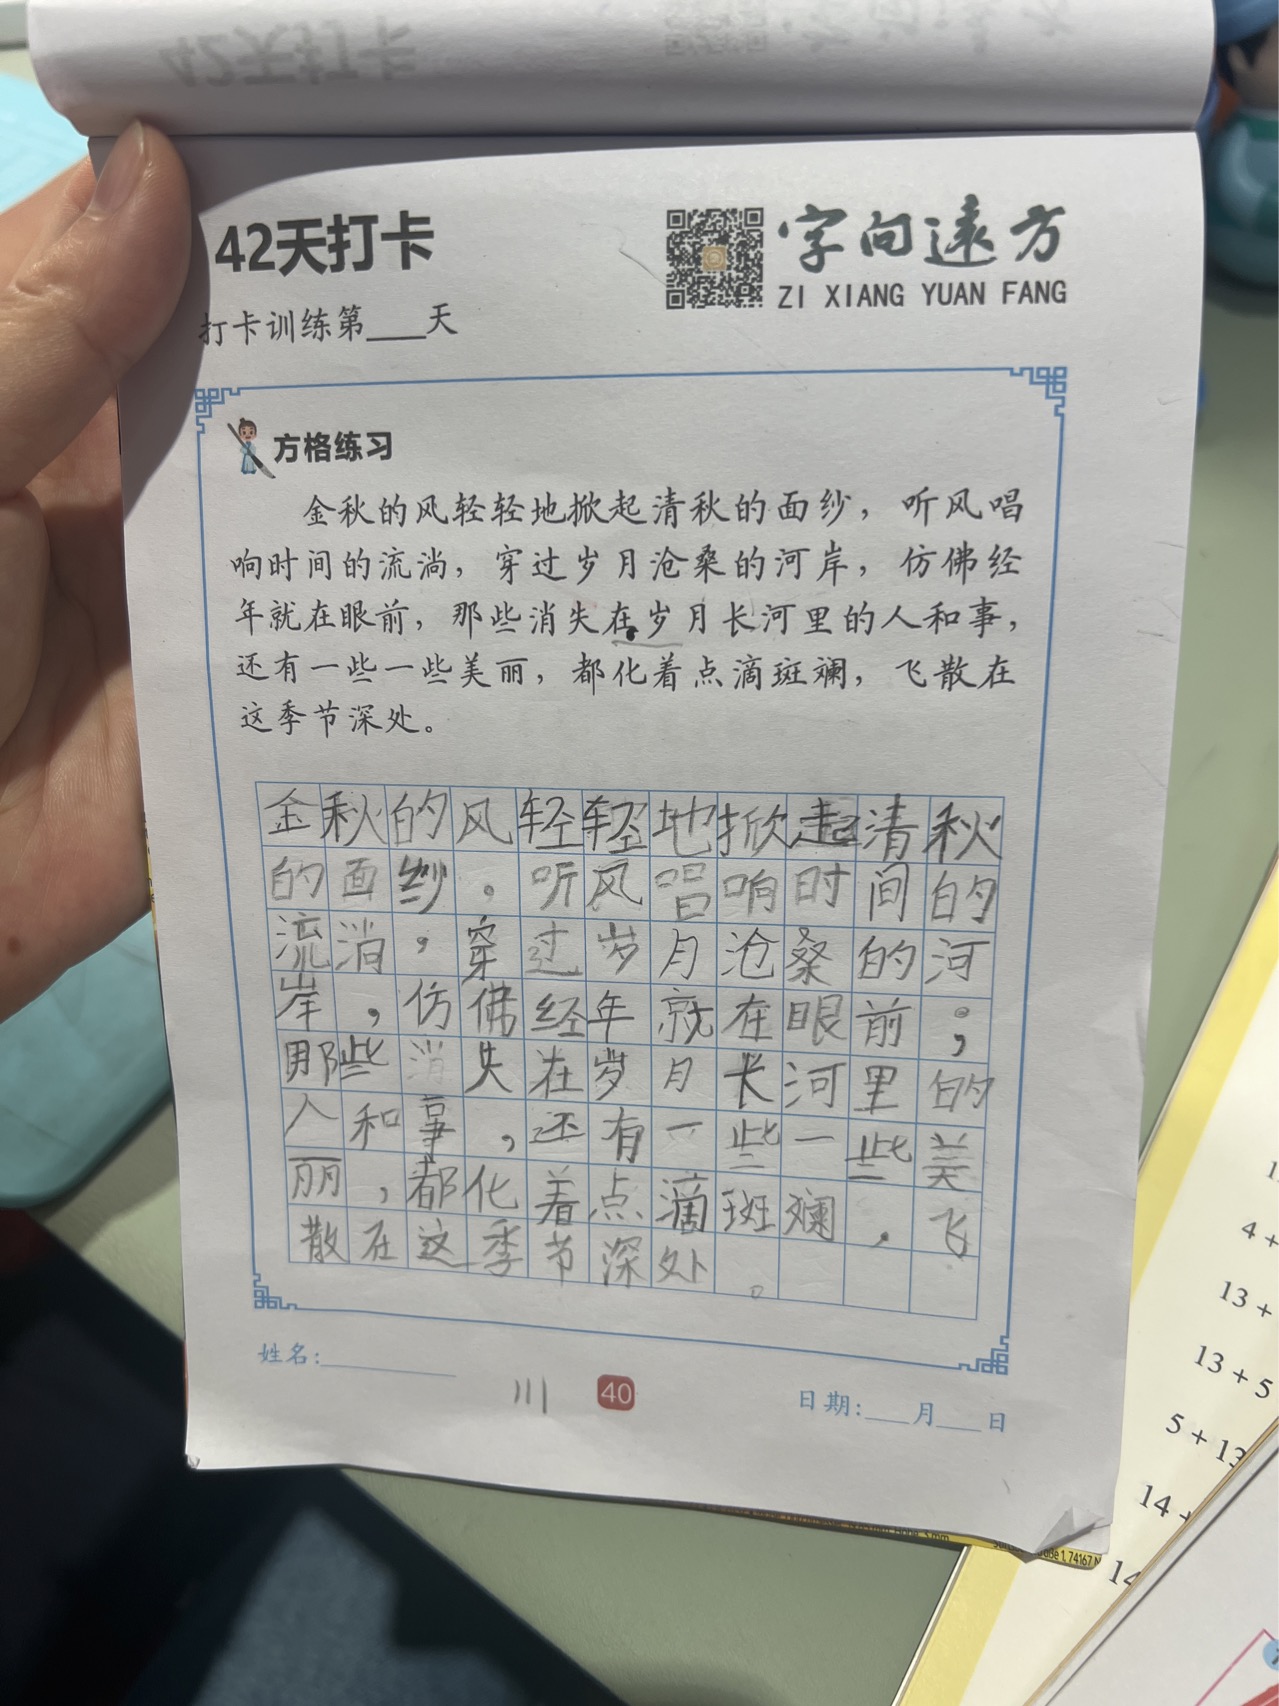 42天打卡
字向远方
ZI XIANG YUAN FANG
打卡训练第___天
方格练习
金秋的风轻轻地掀起清秋的面纱，听风唱
响时间的流淌，穿过岁月沧桑的河岸，仿佛经
年就在眼前，那些消失在岁月长河里的人和事，
还有一些一些美丽，都化着点滴斑斓，飞散在
这季节深处。
金秋的风轻轻地掀起清秋
的面纱。听风唱响时间的
流淌，穿过岁月沧桑的河
岸，仿佛经年就在眼前；
那些消失在岁月长河里的
人和事，还有一些一些美
丽，都化着点滴斑斓，飞
散在这季节深处。
姓名:
40
日期:___月___日
4 +
13 +
13 + 5
5 + 13
14 +
14